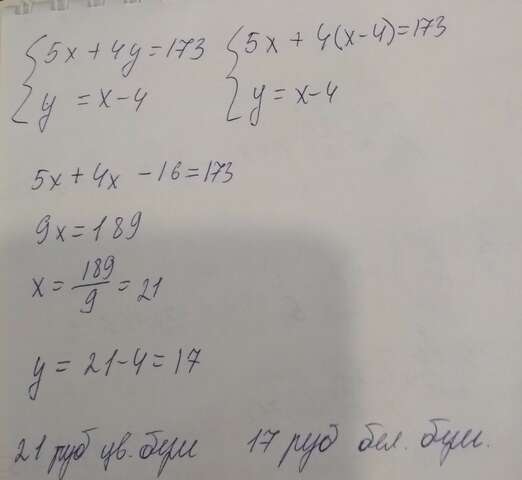 5x + 4y = 173 5x + 4(x-4) = 173
y = x-4 y = x-4
5x + 4x - 16 = 173
9x = 189
x = 189/9 = 21
y = 21-4 = 17
21 руб цв. бум 17 руб бел. бум.